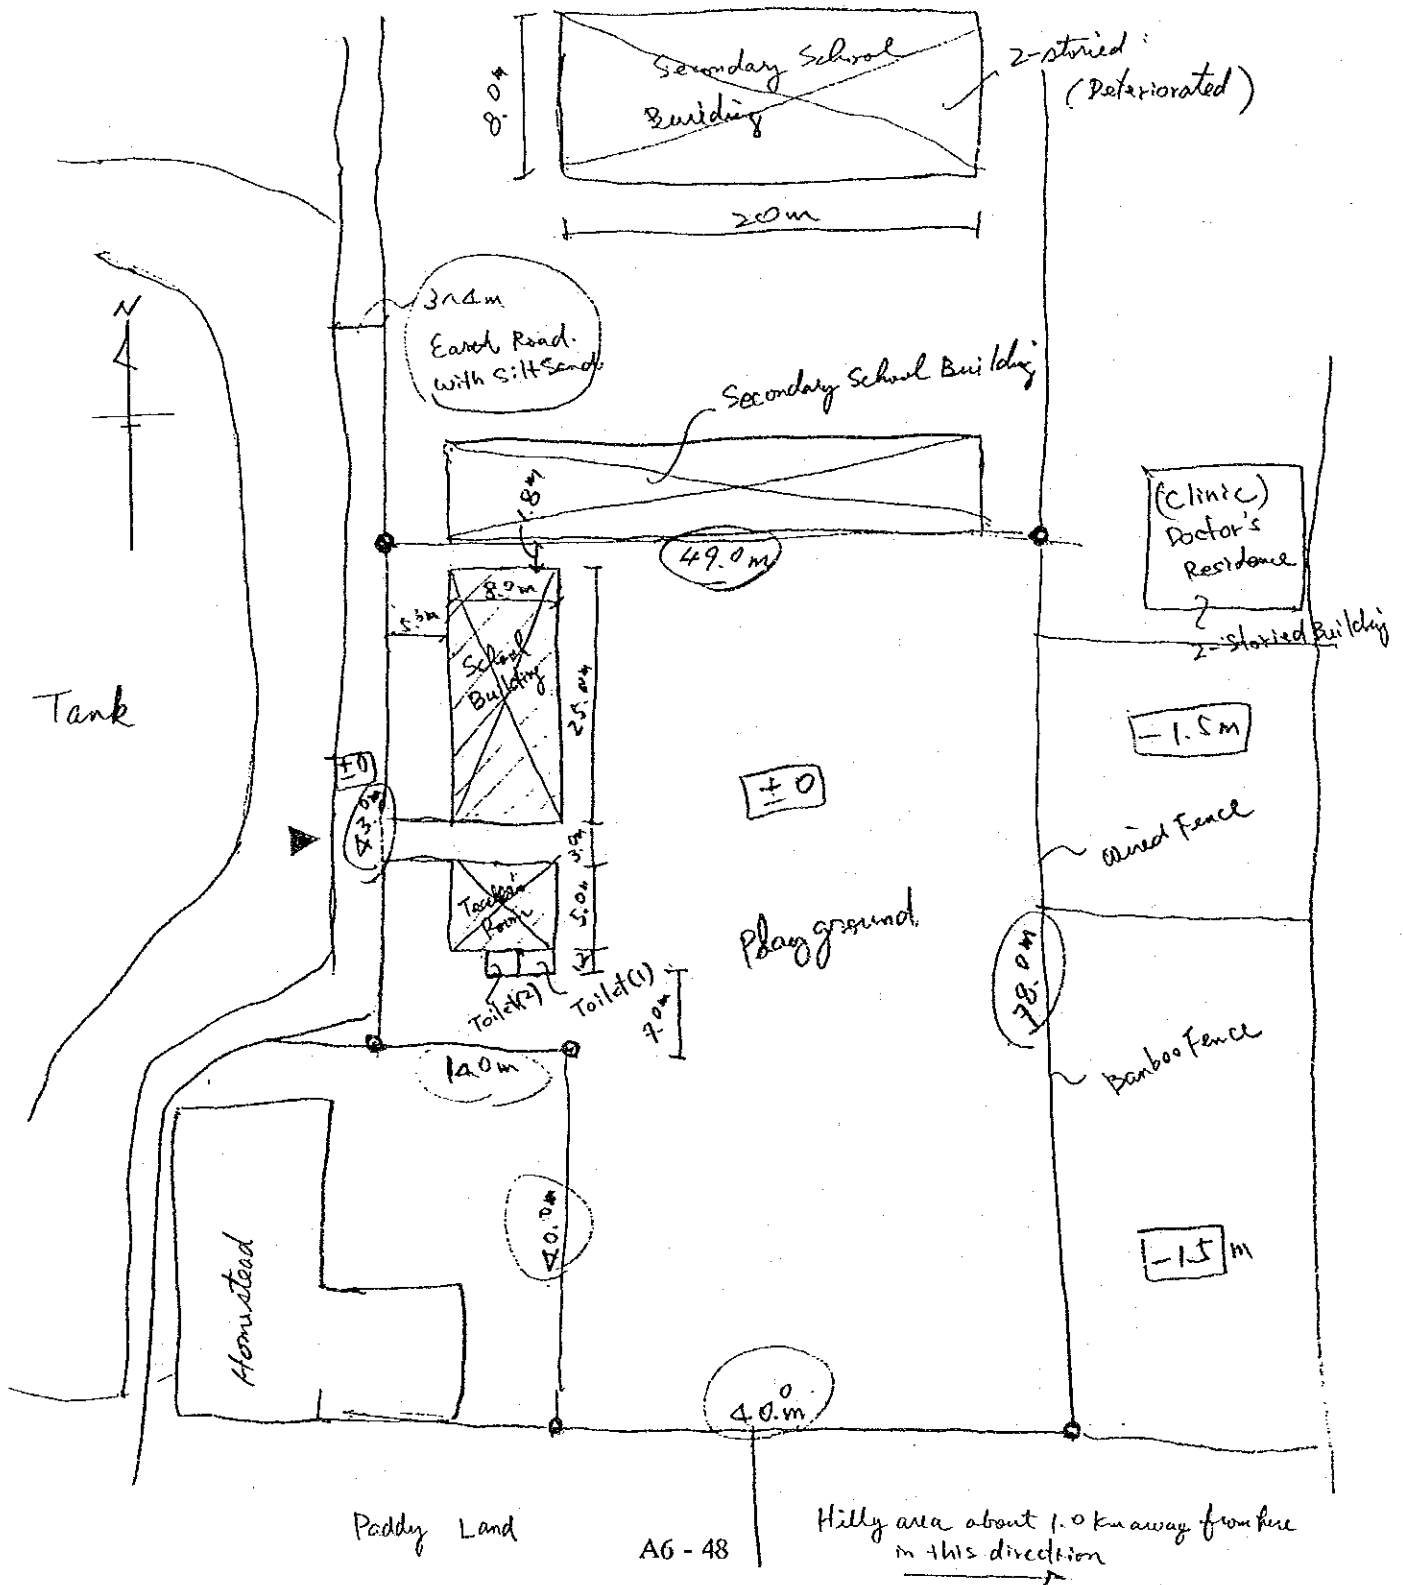 Secondary School
Building
2-storied
(Deteriorated)
8.0m
20m
N
3~4m
Earth Road.
with Silt Sand.
Secondary School Building
1.8m
49.0m
(Clinic)
Doctor's
Residence
2-Storied Building
8.0m
School
Building
Tank
-1.5m
±0
±0
43.0m
Wired Fence
Teacher's
Room
5.0m
Playground
78.0m
Toilet(2)
Toilet(1)
7.0m
14.0m
Bamboo Fence
40.0m
Homestead
-1.5 m
40.0m
Paddy Land
A6 - 48
Hilly area about 1.0 km away from here
in this direction